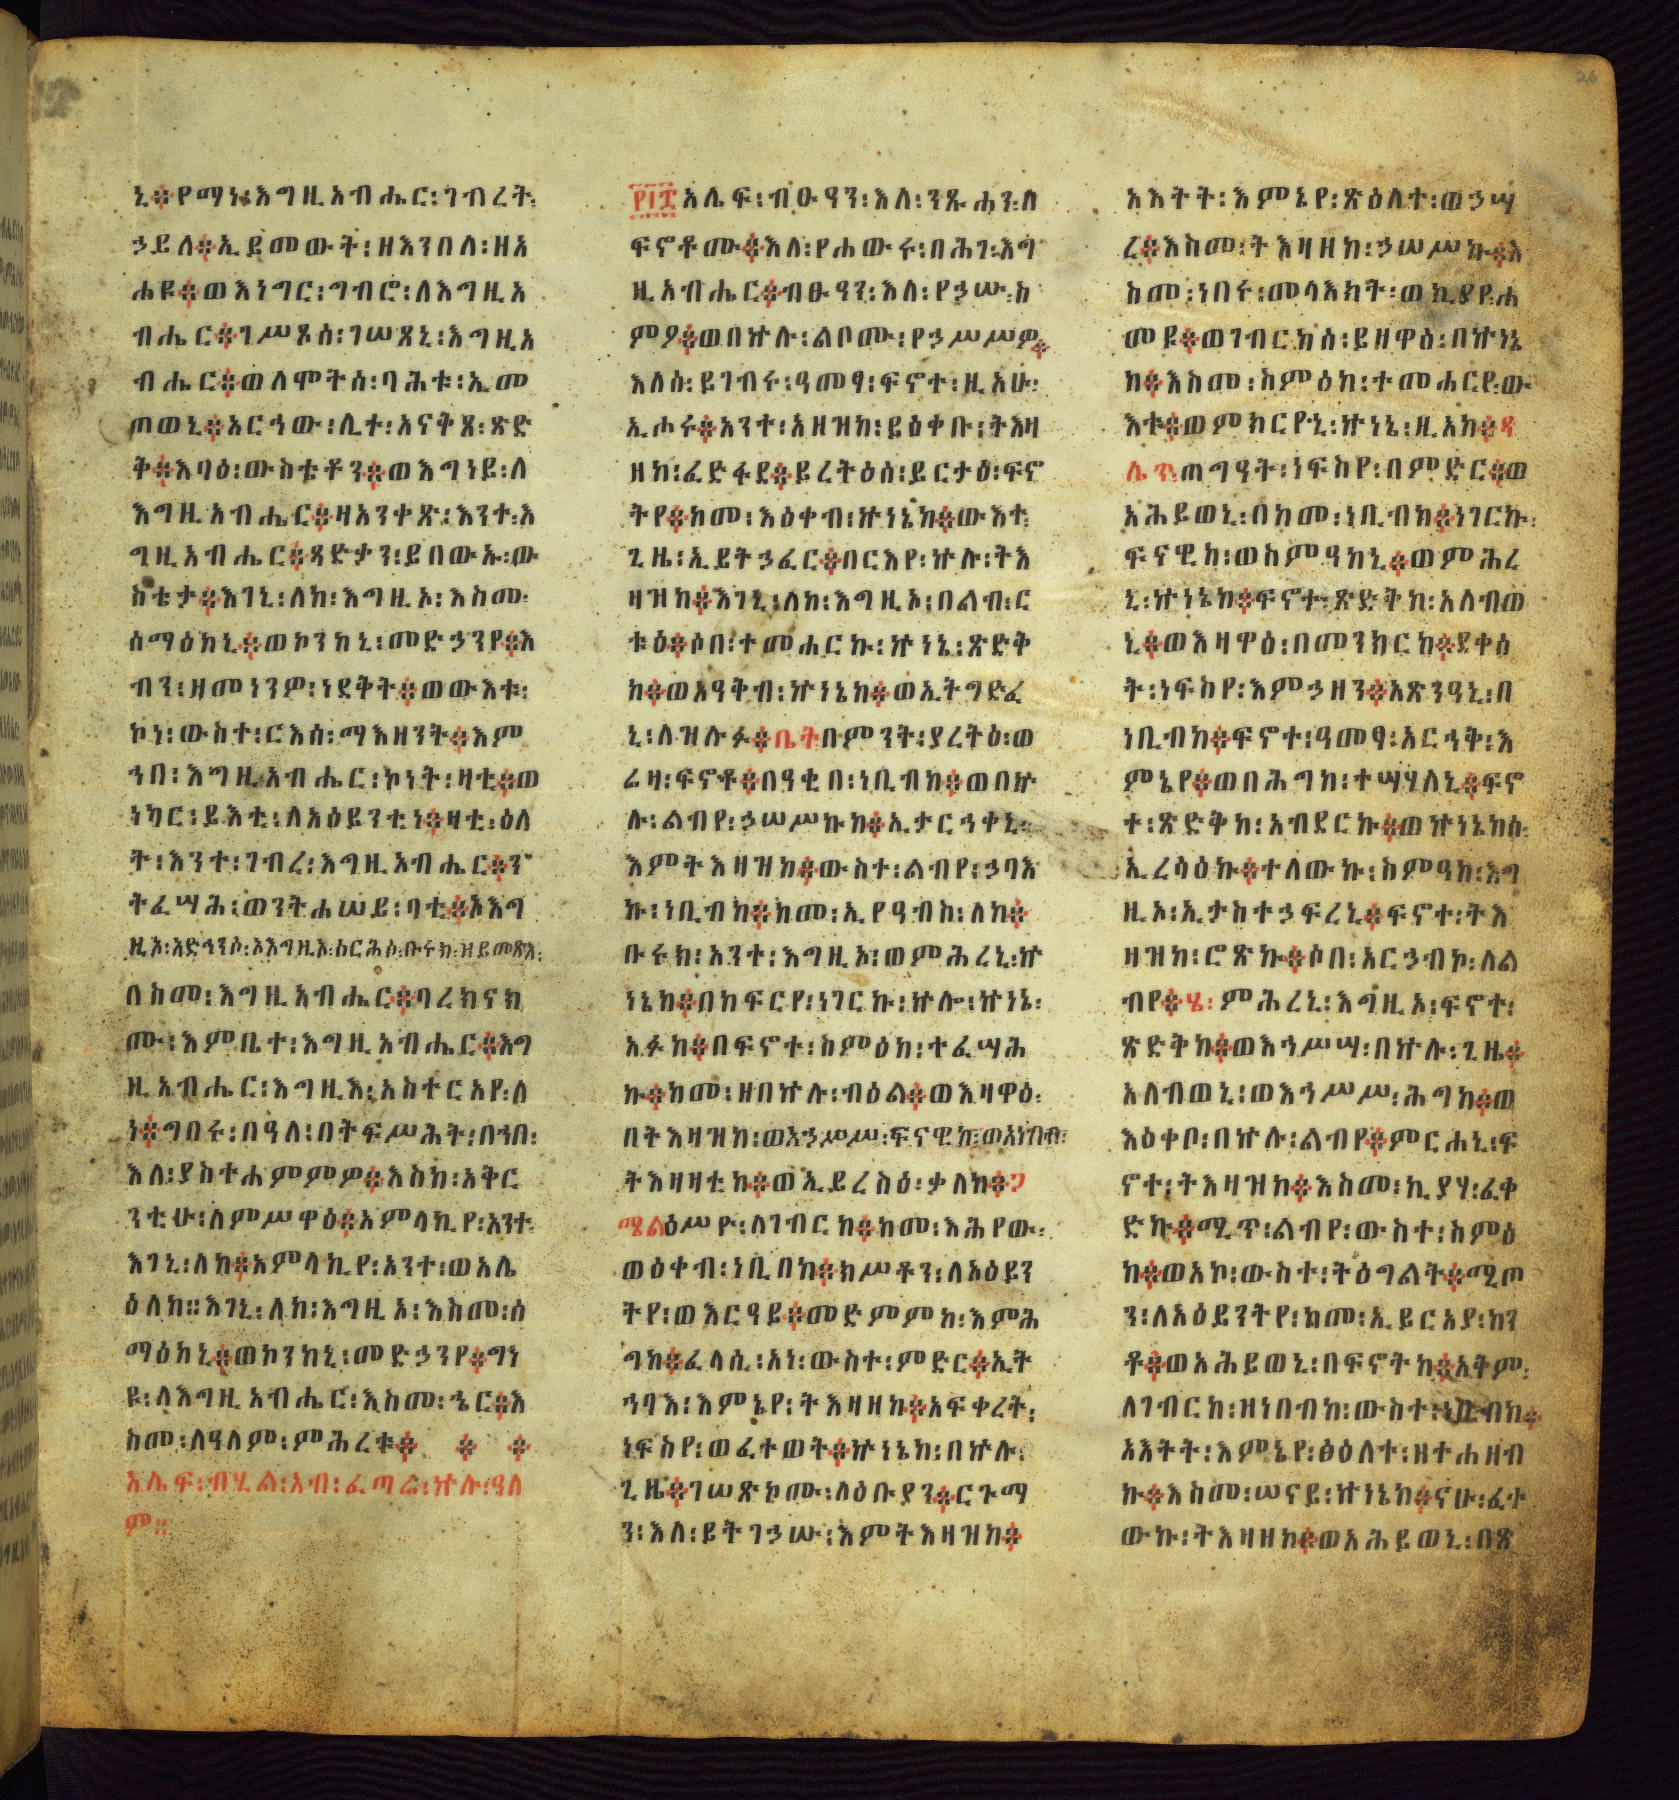 ኒ፨የማነ፡እግዚአብሔር፡ገብረት፡
ኃይለ፨ኢይመውት፡ዘእንበለ፡ዘአ
ሐዩ፨ወእነግር፡ግብሮ፡ለእግዚአ
ብሔር፨ገሥጾሰ፡ገሠጸኒ፡እግዚአ
ብሔር፨ወለሞትሰ፡ባሕቱ፡ኢመ
ጠወኒ፨አርኅው፡ሊተ፡አናቅጸ፡ጽድ
ቅ፨እባዕ፡ውስቴቶን፨ወእግነይ፡ለ
እግዚአብሔር፨ዛአንቀጽ፡እንተ፡እ
ግዚአብሔር፨ጻድቃን፡ይበውኡ፡ው
ስቴታ፨እገኒ፡ለከ፡እግዚኦ፡እስመ፡
ሰማዕከኒ፨ወኮንከኒ፡መድኃንየ፨እ
ብን፡ዘመነንዎ፡ነደቅት፨ወውእቱ፡
ኮነ፡ውስተ፡ርእሰ፡ማእዘንት፨እም
ኀበ፡እግዚአብሔር፡ኮነት፡ዛቲ፨ወ
ነካር፡ይእቲ፡ለአዕይንቲነ፨ዛቲ፡ዕለ
ት፡እንተ፡ገብረ፡እግዚአብሔር፨ን
ትፈሣሕ፡ወንትሐሠይ፡ባቲ፨ኦእግ
ዚኦ፡አድኅንሶ፡ኦእግዚኦ፡ሰርሕሶ፡ቡሩክ፡ዘይመጽእ፡
በስመ፡እግዚአብሔር፨ባረክናክ
ሙ፡እምቤተ፡እግዚአብሔር፨እግ
ዚአብሔር፡እግዚእ፡አስተርአየ፡ለ
ነ፨ግበሩ፡በዓለ፡በትፍሥሕት፡በኀበ፡
እለ፡ያስተሐምምዎ፨እስከ፡አቅር
ንቲሁ፡ለምሥዋዕ፨አምላኪየ፡አንተ፡
እገኒ፡ለከ፨አምላኪየ፡አንተ፡ወአሌ
ዕለከ፡፡እገኒ፡ለከ፡እግዚኦ፡እስመ፡ሰ
ማዕከኒ፨ወኮንከኒ፡መድኃንየ፨ግነ
ዩ፡ለእግዚአብሔር፡እስመ፡ኄር፨እ
ስመ፡ለዓለም፡ምሕረቱ፨ ፨ ፨
አሌፍ፡ብሂል፡አብ፡ፈጣሬ፡ኵሉ፡ዓለ
ም፡፡
፻፲፰አሌፍ፡ብፁዓን፡እለ፡ንጹሐን፡በ
ፍኖቶሙ፨እለ፡የሐውሩ፡በሕገ፡እግ
ዚአብሔር፨ብፁዓን፡እለ፡የኃሡ፡ስ
ምዖ፨ወበኵሉ፡ልቦሙ፡የኃሥሥዎ፨
እለሰ፡ይገብሩ፡ዓመፃ፡ፍኖተ፡ዚአሁ፡
ኢሖሩ፨አንተ፡አዘዝከ፡ይዕቀቡ፡ትእዛ
ዘከ፡ፈድፋደ፨ይረትዕሰ፡ይርታዕ፡ፍኖ
ትየ፨ከመ፡እዕቀብ፡ኵነኔከ፨ውእተ፡
ጊዜ፡ኢይትኃፈር፨በርእየ፡ኵሉ፡ትእ
ዛዝከ፨እገኒ፡ለከ፡እግዚኦ፡በልብ፡ር
ቱዕ፨ሶበ፡ተመሐርኩ፡ኵነኔ፡ጽድቅ
ከ፨ወአዓቅብ፡ኵነኔከ፨ወኢትግድፈ
ኒ፡ለዝሉፉ፨ቤትበምንት፡ያረትዕ፡ወ
ሬዛ፡ፍኖቶ፨በዓቂበ፡ነቢብከ፨ወበኵ
ሉ፡ልብየ፡ኃሠሥኩከ፨ኢታርኅቀኒ፡
እምትእዛዝከ፨ውስተ፡ልብየ፡ኃባእ
ኩ፡ነቢብከ፨ከመ፡ኢየዓብስ፡ለከ፨
ቡሩክ፡አንተ፡እግዚኦ፡ወምሕረኒ፡ኵ
ነኔከ፨በከፍርየ፡ነገርኩ፡ኵሎ፡ኵነኔ፡
አፉከ፨በፍኖተ፡ስምዕከ፡ተፈሣሕ
ኩ፨ከመ፡ዘበኵሉ፡ብዕል፨ወእዛዋዕ፡
በትእዛዝከ፡ወአኃሥሥ፡ፍናዊከ፡ወእነብብ፡
ትእዛዛቲከ፨ወኢይረስዕ፡ቃለከ፨ጋ
ሜልዕሥዮ፡ለገብርከ፨ከመ፡እሕየው፡
ወዕቀብ፡ነቢበከ፨ክሥቶን፡ለአዕይን
ትየ፡ወእርዓይ፨መድምምከ፡እምሕ
ግከ፨ፈላሲ፡አነ፡ውስተ፡ምድር፨ኢት
ኅባእ፡እምኔየ፡ትእዛዘከ፨አፍቀረት፡
ነፍስየ፡ወፈተወት፨ኵነኔከ፡በኵሉ፡
ጊዜ፨ገሠጽኮሙ፡ለዕቡያን፨ርጉማ
ን፡እለ፡ይትገኃሡ፡እምትእዛዝከ፨
አእትት፡እምኔየ፡ጽዕለተ፡ወኃሣ
ረ፨እስመ፡ትእዛዘከ፡ኃሠሥኩ፨እ
ስመ፡ነበሩ፡መላእክት፡ወኪያየ፡ሐ
መዩ፨ወገብርከሰ፡ይዘዋዕ፡በኵነኔ
ከ፨እስመ፡ስምዕከ፡ተመሐርየ፡ው
እቱ፨ወምክርየኒ፡ኵነኔ፡ዚአከ፨ዳ
ሌጥ፡ጠግዓት፡ነፍስየ፡በምድር፨ወ
አሕይወኒ፡በከመ፡ነቢብከ፨ነገርኩ፡
ፍናዊከ፡ወስምዓከኒ፨ወምሕረ
ኒ፡ኵነኔከ፨ፍኖተ፡ጽድቅከ፡አለብወ
ኒ፨ወእዛዋዕ፡በመንክርከ፨ደቀሰ
ት፡ነፍስየ፡እምኃዘን፨አጽንዓኒ፡በ
ነቢብከ፨ፍኖተ፡ዓመፃ፡አርኅቅ፡እ
ምኔየ፨ወበሕግከ፡ተሣሃለኒ፨ፍኖ
ተ፡ጽድቅከ፡አብደርኩ፨ወኵነኔከሰ፡
ኢረሳዕኩ፨ተለውኩ፡ስምዓከ፡እግ
ዚኦ፡ኢታስተኃፍረኒ፨ፍኖተ፡ትእ
ዛዝከ፡ሮጽኩ፨ሶበ፡አርኃብኮ፡ለል
ብየ፨ሄ፡ምሕረኒ፡እግዚኦ፡ፍኖተ፡
ጽድቅከ፨ወእኅሥሣ፡በኵሉ፡ጊዜ፨
አለብወኒ፡ወእኅሥሥ፡ሕግከ፨ወ
እዕቀቦ፡በኵሉ፡ልብየ፨ምርሐኒ፡ፍ
ኖተ፡ትእዛዝከ፨እስመ፡ኪያሃ፡ፈቀ
ድኩ፨ሚጥ፡ልብየ፡ውስተ፡ስምዕ
ከ፨ወአኮ፡ውስተ፡ትዕግልት፨ሚጦ
ን፡ለአዕይንትየ፡ከመ፡ኢይርአያ፡ከን
ቶ፨ወአሕይወኒ፡በፍኖትከ፨አቅም፡
ለገብርከ፡ዘነበብከ፡ውስተ፡ነቢብከ፨
አእትት፡እምኔየ፡ፅዕለተ፡ዘተሐዘብ
ኩ፨እስመ፡ሠናይ፡ኵነኔከ፨ናሁ፡ፈተ
ውኩ፡ትእዛዘከ፨ወአሕይወኒ፡በጽ